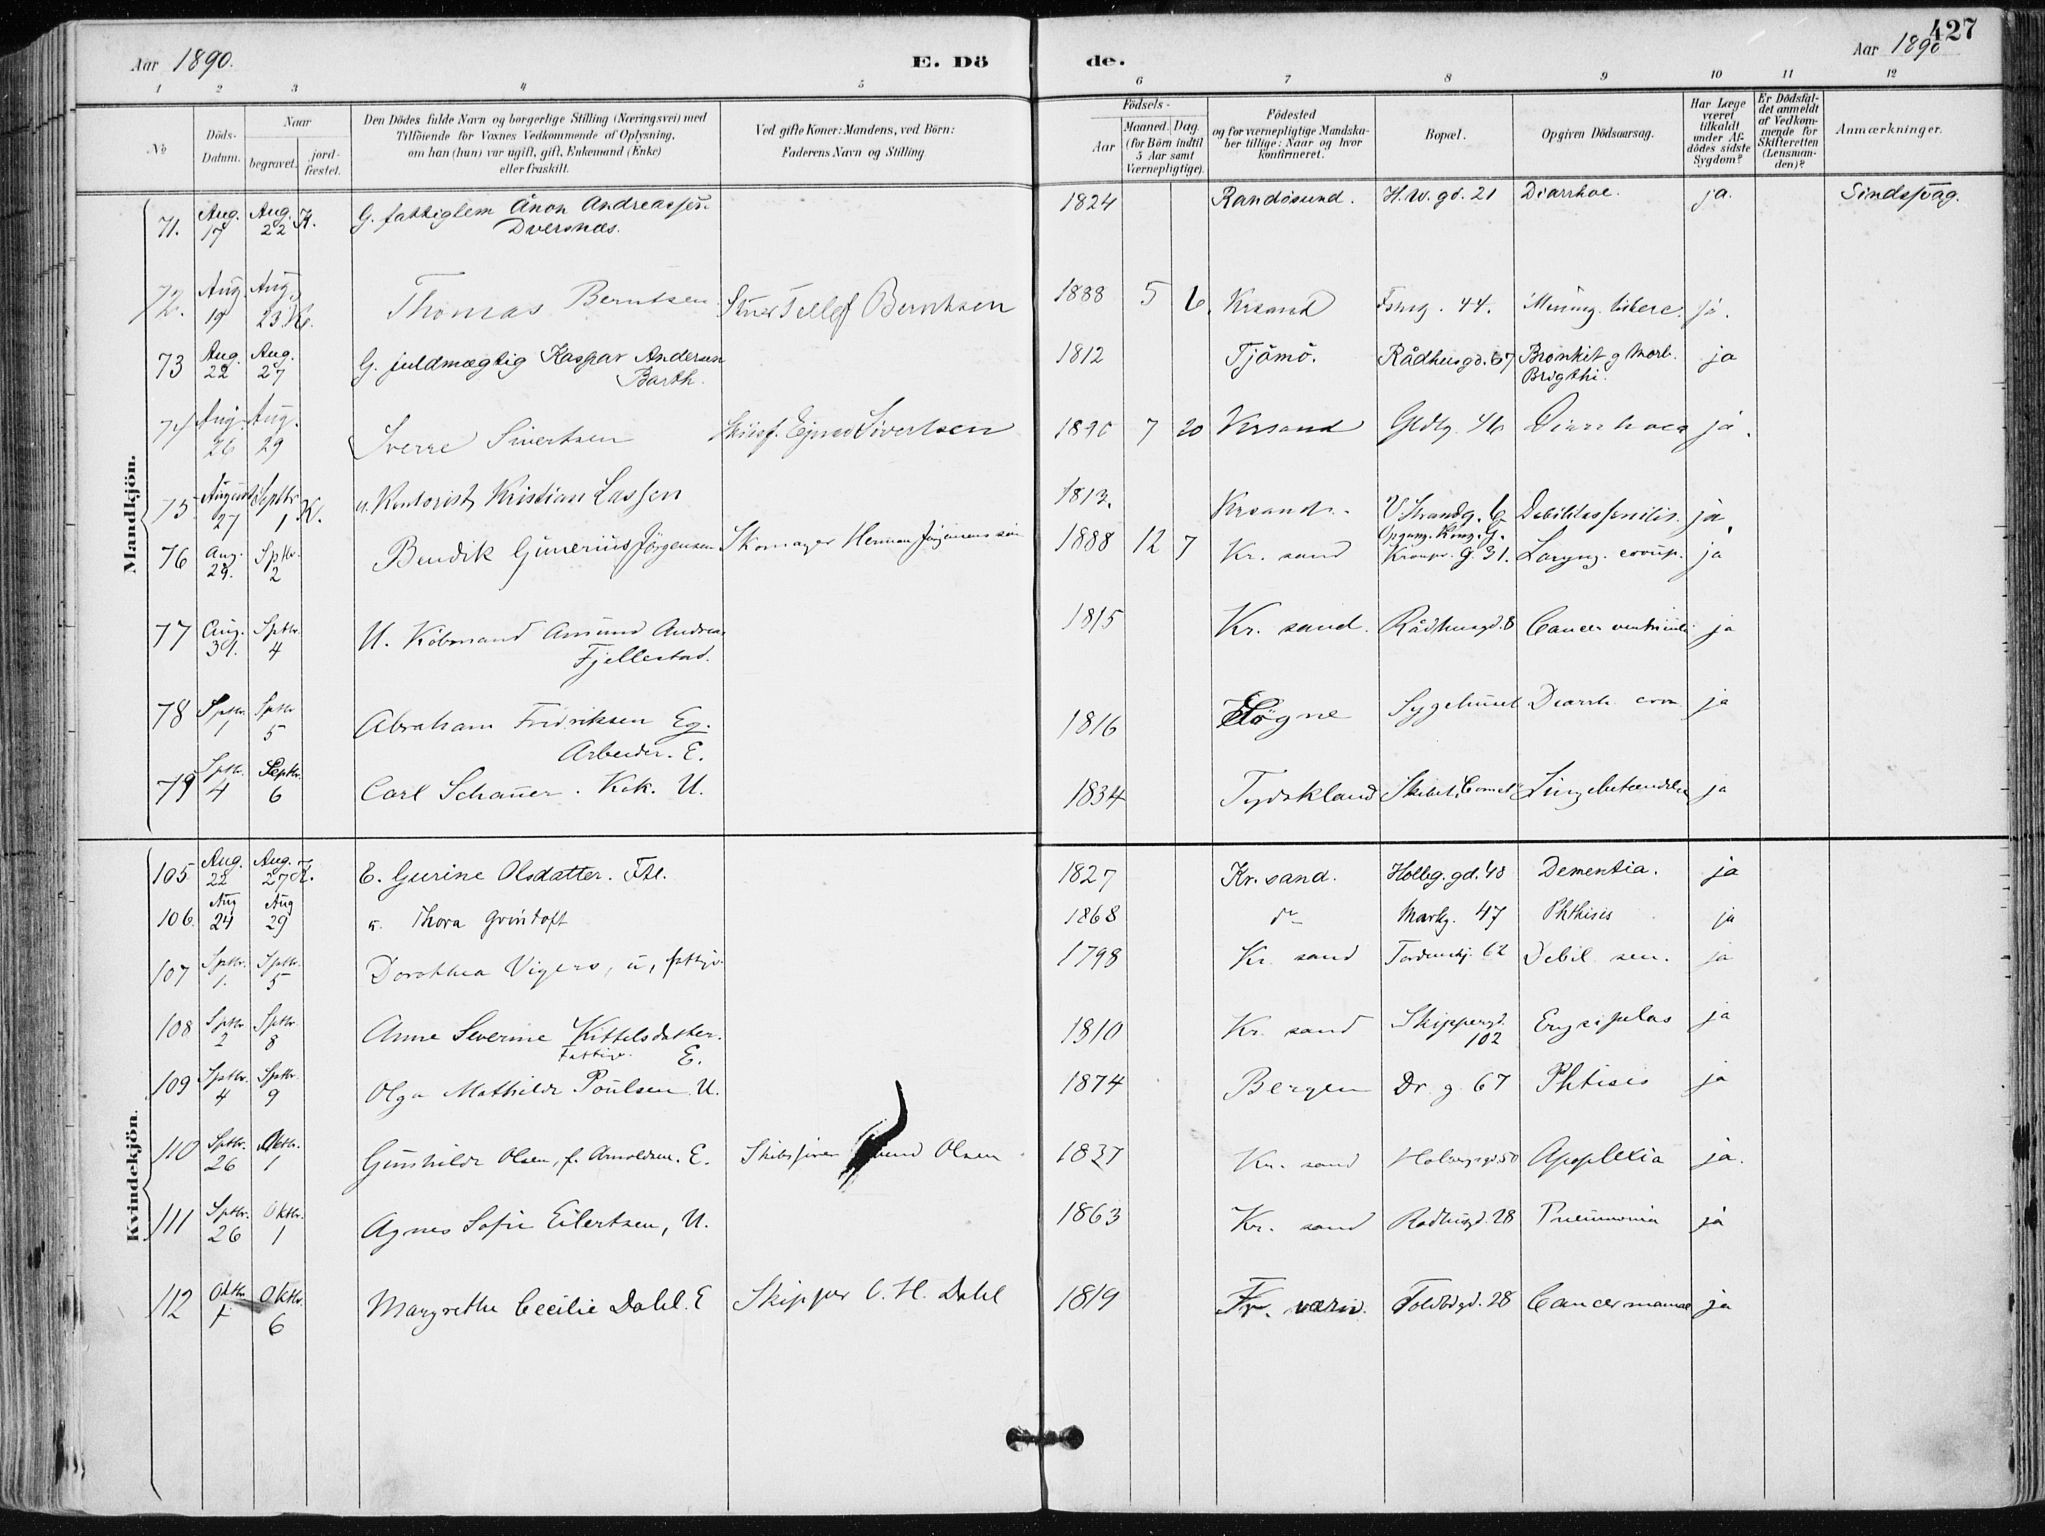 427
Aar 1890. E. Dö de. Aar 1890
1 2 3 4 5 6 7 8 9 10 11 12
No
Döds-Datum.
Naar begravet. jordfæstet.
Den Dödes fulde Navn og borgerlige Stilling (Næringsvei) med
Tilföiende for Voxnes Vedkommende af Oplysning,
om han (hun) var ugift, gift, Enkemand (Enke)
eller fraskilt.
Ved gifte Koner: Mandens, ved Börn:
Faderens Navn og Stilling
Födsels-
Aar Maaned. Dag.
(for Börn indtil
5 Aar samt
Værnepligtige).
Födested
og for værnepligtige Mandska-
ber tillige: Naar og hvor
konfirmeret.
Bopæl.
Opgiven Dödsaarsag.
Har Læge
været
tilkaldt
under Af-
dödes sidste
Sygdom?
Er Dödsfal-
det anmeldt
af Vedkom-
mende for
Skifteretten
(Lensman-
den)?
Anmærkninger.
Mandkjön.
71. Aug. 17 Aug. 22 K. G. fattiglem Ånon Andreassen 1824 Randösund. H.W. gd. 21 Diarrhoe. ja. Sindssvag.
Dversnæs.
72. Aug. 19 Aug. 23 K. Thomas Berntsen Tellef Berntsen 1888 5 6. Krsand 44. ja.
73 Aug. 22 Aug. 27 G. fuldmægtig Kaspar Andersen 1812 Tjömö. Rådhusgd. 67 Bronkit g Morb. ja
Barth. Brigthi.
74 Aug. 26 Aug. 29 Sverre Sivertsen Ejnar Sivertsen 1890 7 20 Krsand Gldlg. 46 Diarrhoea ja.
75 August 27 Septbr 1 K. u. Kontorist Kristian Lassen 1813. Krsand. V. Strandg. 6 Debilitas senilis. ja.
76 Aug. 29. Sptbr. 2 Bendik Gunerius Jörgensen Skomager Herman Jörgensen 1888 12 7 Kr. sand Kronpr. G. 31. Laryng. croup. ja
77 Aug. 31. Sptbr. 4 U. Köbmand Amund Andreas 1815 Kr. sand. Rådhusgd. 8 Cancer ventriculi ja
Fjellestad.
78 Sptbr. 1 Sptbr 5 Abraham Fridriksen Eg. 1816 Högne Sygehuset Diarrh. ja
Arbeider. E.
79 Sptbr. 4 Septbr. 6 Carl Schauer. Kok. U. 1834 Tydskland Skibet Lungebetændelse ja
Kvindekjön.
105 Aug. 22 Aug. 27 K. E. Gurine Olsdatter. Ftl. 1827 Kr. sand. Holbg. gd. 48 Dementia. ja
106 Aug 24 Aug 29 u. Thora Gröntoft 1868 do Markg. 47 Phthisis ja
107 Sptbr. 1. Sptbr. 5 Dorothea Vigers, u, 1798 Kr. sand Tordenskj. 62 Debil sen. ja
108 Sptbr 2 Sptbr. 8 Anne Severine Kittelsdatter. 1810 Kr. sand Skippergd. 102 Erysipelas ja
Fattigl. E.
109 Sptbr. 4 Sptbr. 9 Olga Mathilde Poulsen U. 1874 Bergen Dr. g. 67 Phtisis ja
110 Sptbr. 26 Oktbr. 1 Gunhilde Olsen, f. Arnoldsen. E. Olsen 1837 Kr. sand Apoplexia ja.
111 Sptbr. 26 Oktbr. 1 Agnes Sofie Eilertsen, U. 1863 Kr. sand Rådhusgd. 28 Pneumonia ja
112 Oktbr. 1 Oktbr. 6 Margrethe Cecilie Dahl. E Skipper C. H. Dahl 1819 Fr. værn. Toldbdgd. 28 Cancer mammae ja